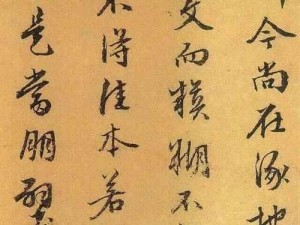 今尚在涿地
文而糢糊不
不得佳本若
是當朋